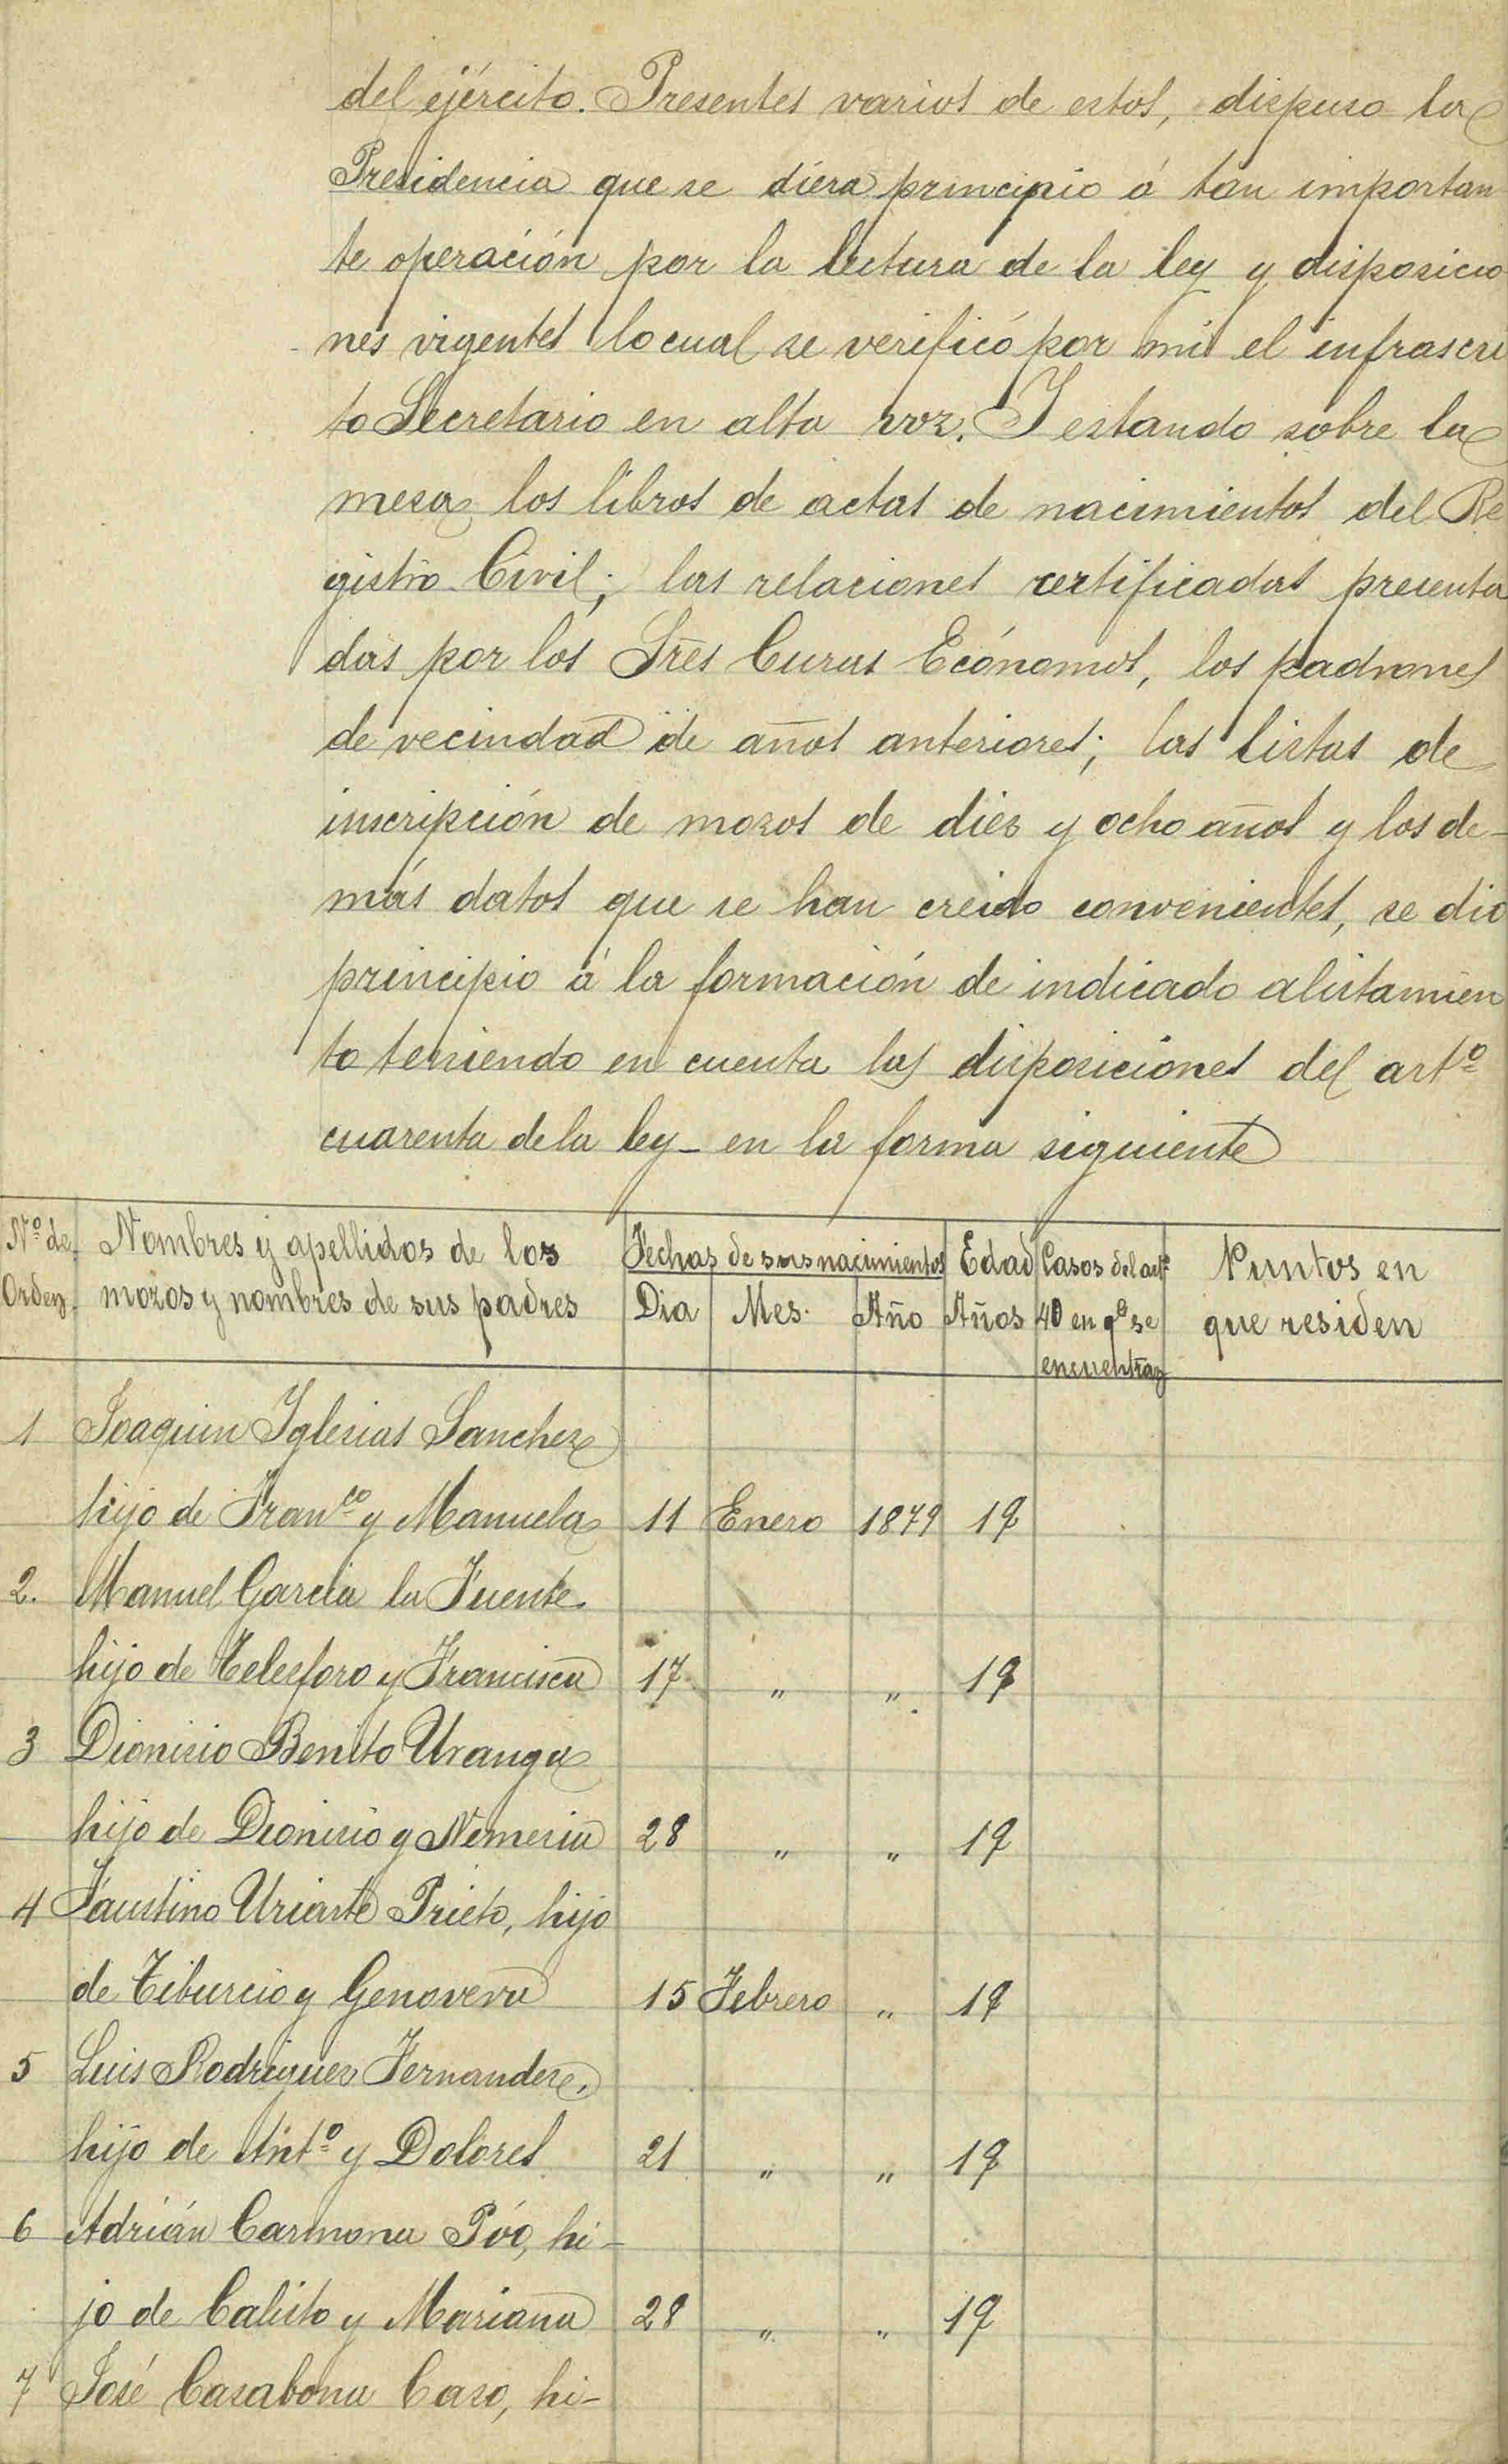 del ejército. Presentes varios de estos, dispuso la
Presidencia que se diera principio á tan importan
te operación por la lectura de la ley y disposicio
nes vigentes lo cual se verificó por mi el infrascri
to Secretario en alta voz. Y estando sobre la
mesa los libros de actas de nacimientos del Re
gistro Civil; las relaciones certificadas presenta
das por los Sres Curas Ecónomos, los padrones
de vecindad de años anteriores; las listas de
inscripción de mozos de diez y ocho años y los de-
más datos que se han creido convenientes, se dió
principio á la formación de indicado alistamien
to teniendo en cuenta las disposiciones del artº
cuarenta de la ley - en la forma siguiente
Nº de Orden. Nombres y apellidos de los mozos y nombres de sus padres Fechas de sus nacimientos Dia Mes. Año Edad Años Casos del artº 40 en qe se encuentran Puntos en que residen
1 Joaquin Iglesias Sanchez
hijo de Franco y Manuela 11 Enero 1879 19
2. Manuel Garcia la Fuente.
hijo de Telesforo y Francisca 17 " " 19
3 Dionisio Benito Uranga
hijo de Dionisio y Nemesia 28 " " 19
4 Faustino Uriarte Prieto, hijo
de Tiburcio y Genoveva 15 Febrero " 19
5 Luis Rodriguez Fernandez.
hijo de Antº y Dolores 21 " " 19
6 Adrián Carmona Póo, hi-
jo de Calisto y Mariana 28 " " 19
7 José Casabona Caso, hi-